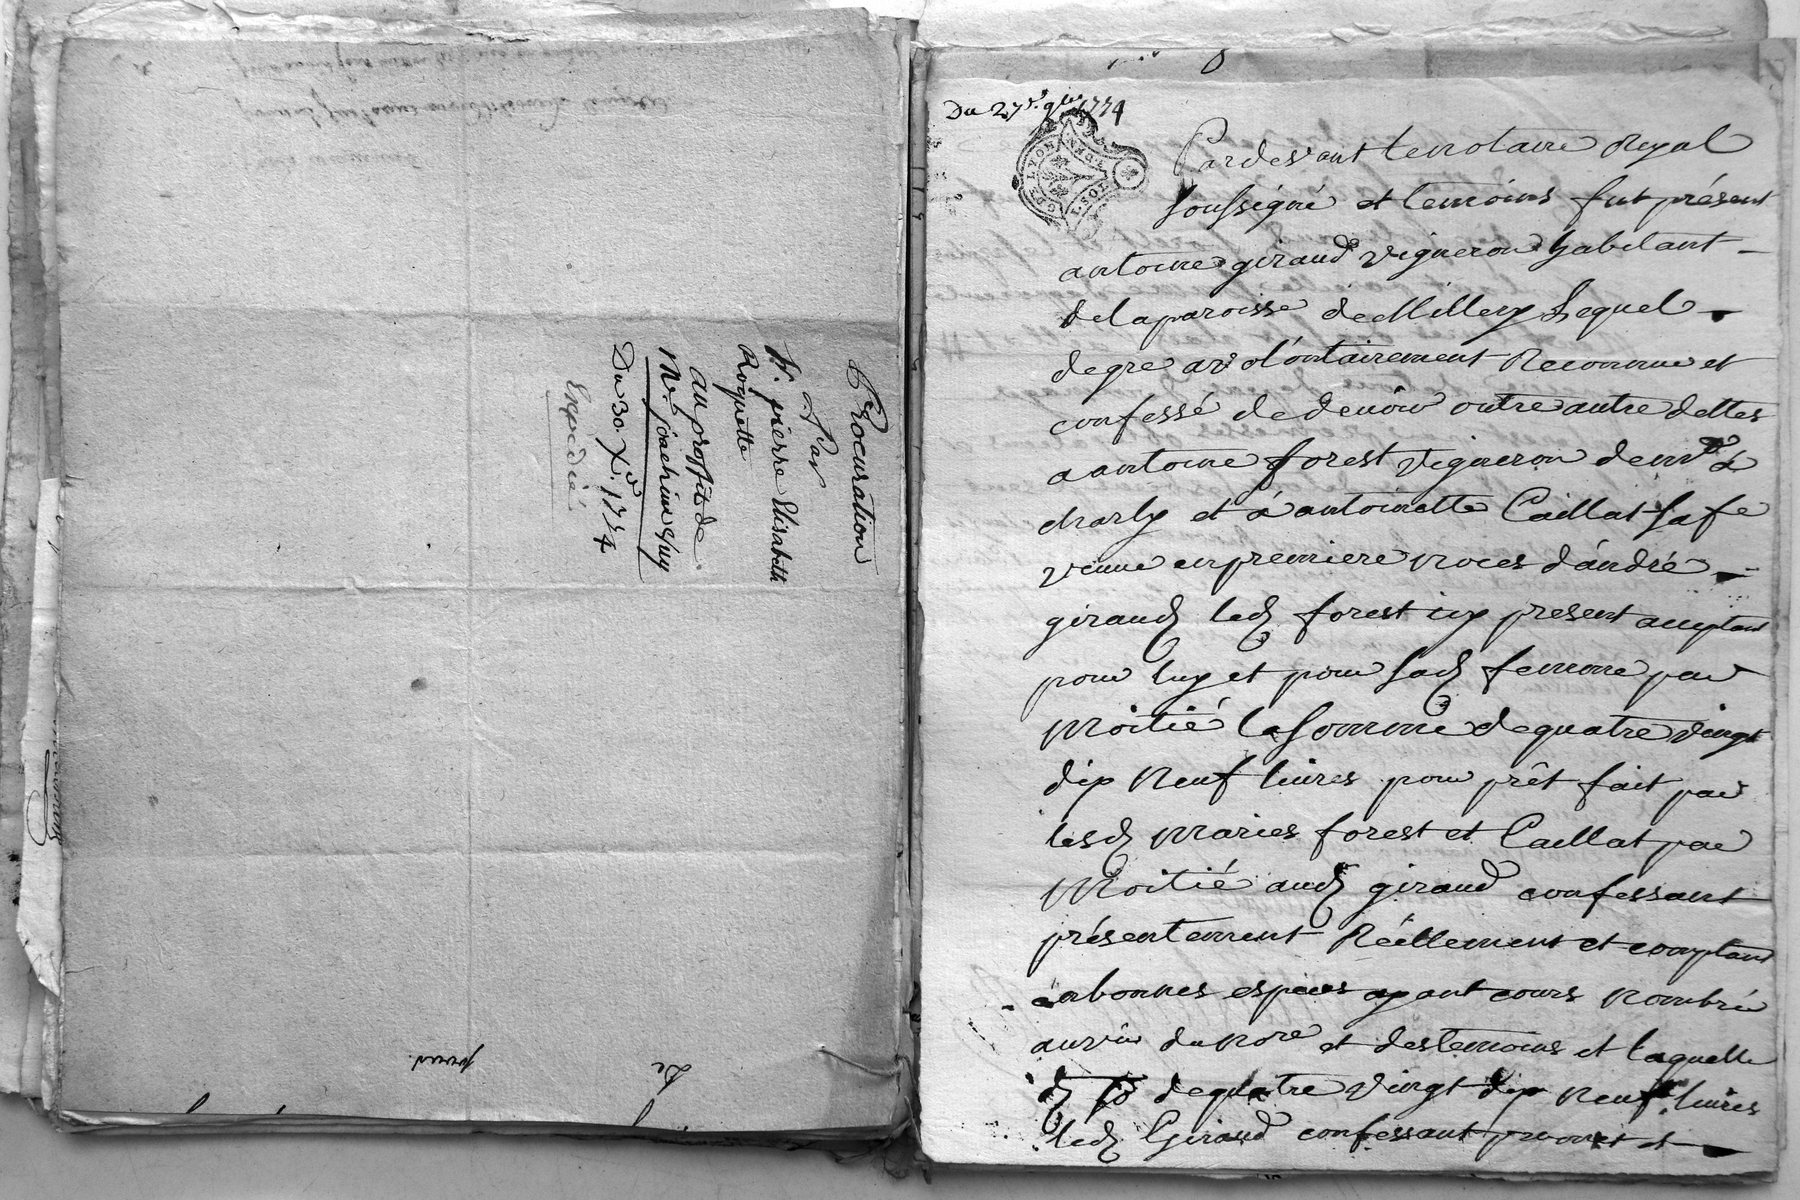 Procuration
Par
Sr. pierre Elisabeth
Roquette
au proffit de
Mr. joachim
Du 30. Xbre. 1754
Expedié
pour
De
Du 27e. 9bre 1774
G. DE LYON
Pardevant le notaire Royal
soussigné et temoins fut présent
antoine giraud vigneron habitant
de la paroisse de Millery Lequel
de gre a volontairement Reconnue et
confessé de devoir outre autre dettes
a antoine forest vigneron demt. à
charly et à antoinette Caillat sa fe
veuve en premiere noces d'andré
giraud led. forest icy present acceptant
pour luy et pour sad. femme par
Moitié la somme de quatre vingt
dix neuf livres pour prêt fait par
lesd. maries forest et Caillat par
Moitié aud. giraud confessant
présentement Réellement et comptant
en bonnes especes ayant cours nombrée
au vu du nore et des temoins et laquelle
d. so. de quatre vingt dix neuf livres
led. Giraud confessant promet et